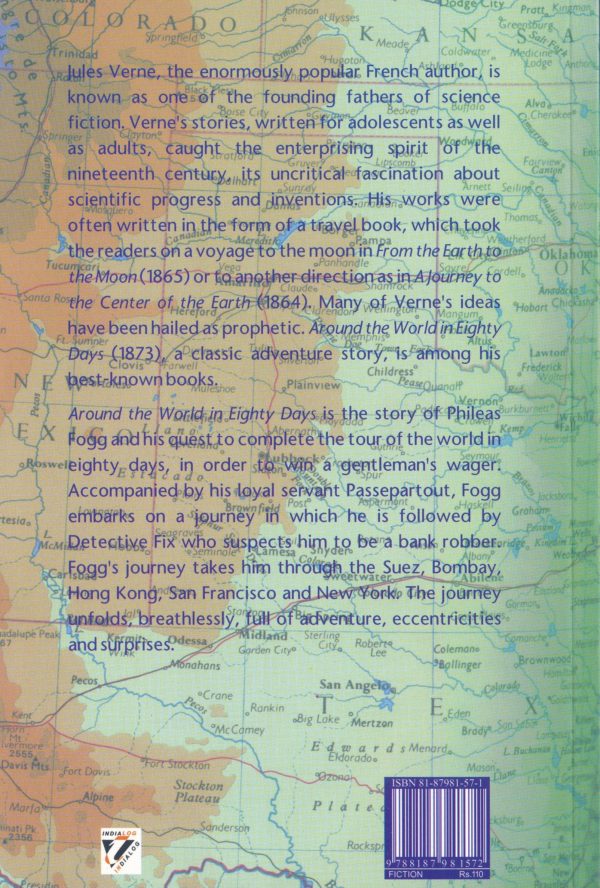 Jules Verne, the enormously popular French author, is
known as one of the founding fathers of science
fiction. Verne's stories, written for adolescents as well
as adults, caught the enterprising spirit of the
nineteenth century, its uncritical fascination about
scientific progress and inventions. His works were
often written in the form of a travel book, which took
the readers on a voyage to the moon in From the Earth to
the Moon (1865) or to another direction as in A Journey to
the Center of the Earth (1864). Many of Verne's ideas
have been hailed as prophetic. Around the World in Eighty
Days (1873), a classic adventure story, is among his
best-known books.
Around the World in Eighty Days is the story of Phileas
Fogg and his quest to complete the tour of the world in
eighty days, in order to win a gentleman's wager.
Accompanied by his loyal servant Passepartout, Fogg
embarks on a journey in which he is followed by
Detective Fix who suspects him to be a bank robber.
Fogg's journey takes him through the Suez, Bombay,
Hong Kong, San Francisco and New York. The journey
unfolds, breathlessly, full of adventure, eccentricities
and surprises.
COLORADO
KANSA
Johnson
Ulysses
Pratt
Kingman
Springfield
Cimarron
Meade
Coldwater
Medicine
Greensburg
Trinidad
Hugoton
Alva
Cherokee
Woodward
Canadian
Pampa
Oklahoma
Tucumcari
Santa Rosa
Hereford
Childress
Altus
Lawton
Clovis
Plainview
Vernon
Roswell
Lubbock
Brownfield
Post
Haskell
Seminole
Lamesa
Snyder
Sweetwater
Abilene
Carlsbad
Kermit
Odessa
Midland
Garden City
Sterling
City
Robert
Lee
Coleman
Ballinger
Brownwood
Monahans
Pecos
San Angelo
Pecos
Crane
Rankin
Big Lake
Mertzon
Eden
Brady
McCamey
TEX
Kent
Edwards
Menard
Eldorado
Fort Davis
Fort Stockton
Ozona
Stockton
Plateau
Plate
Marfa
Alpine
Sanderson
Rockspr
INDIALOG
INDIALOG
ISBN 81-87981-57-1
9 788187 981572
FICTION Rs.110